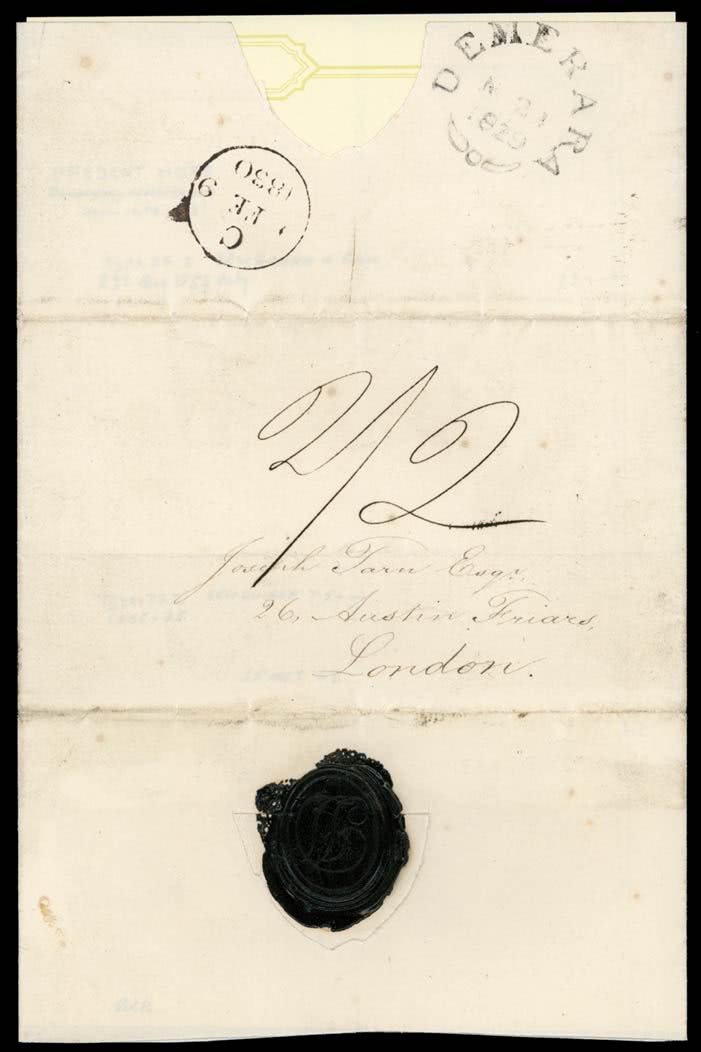 DEMERARA
1829
C
FE 9
1830
2/2
Joseph Tarn Esqr.
26, Austin Friars,
London.